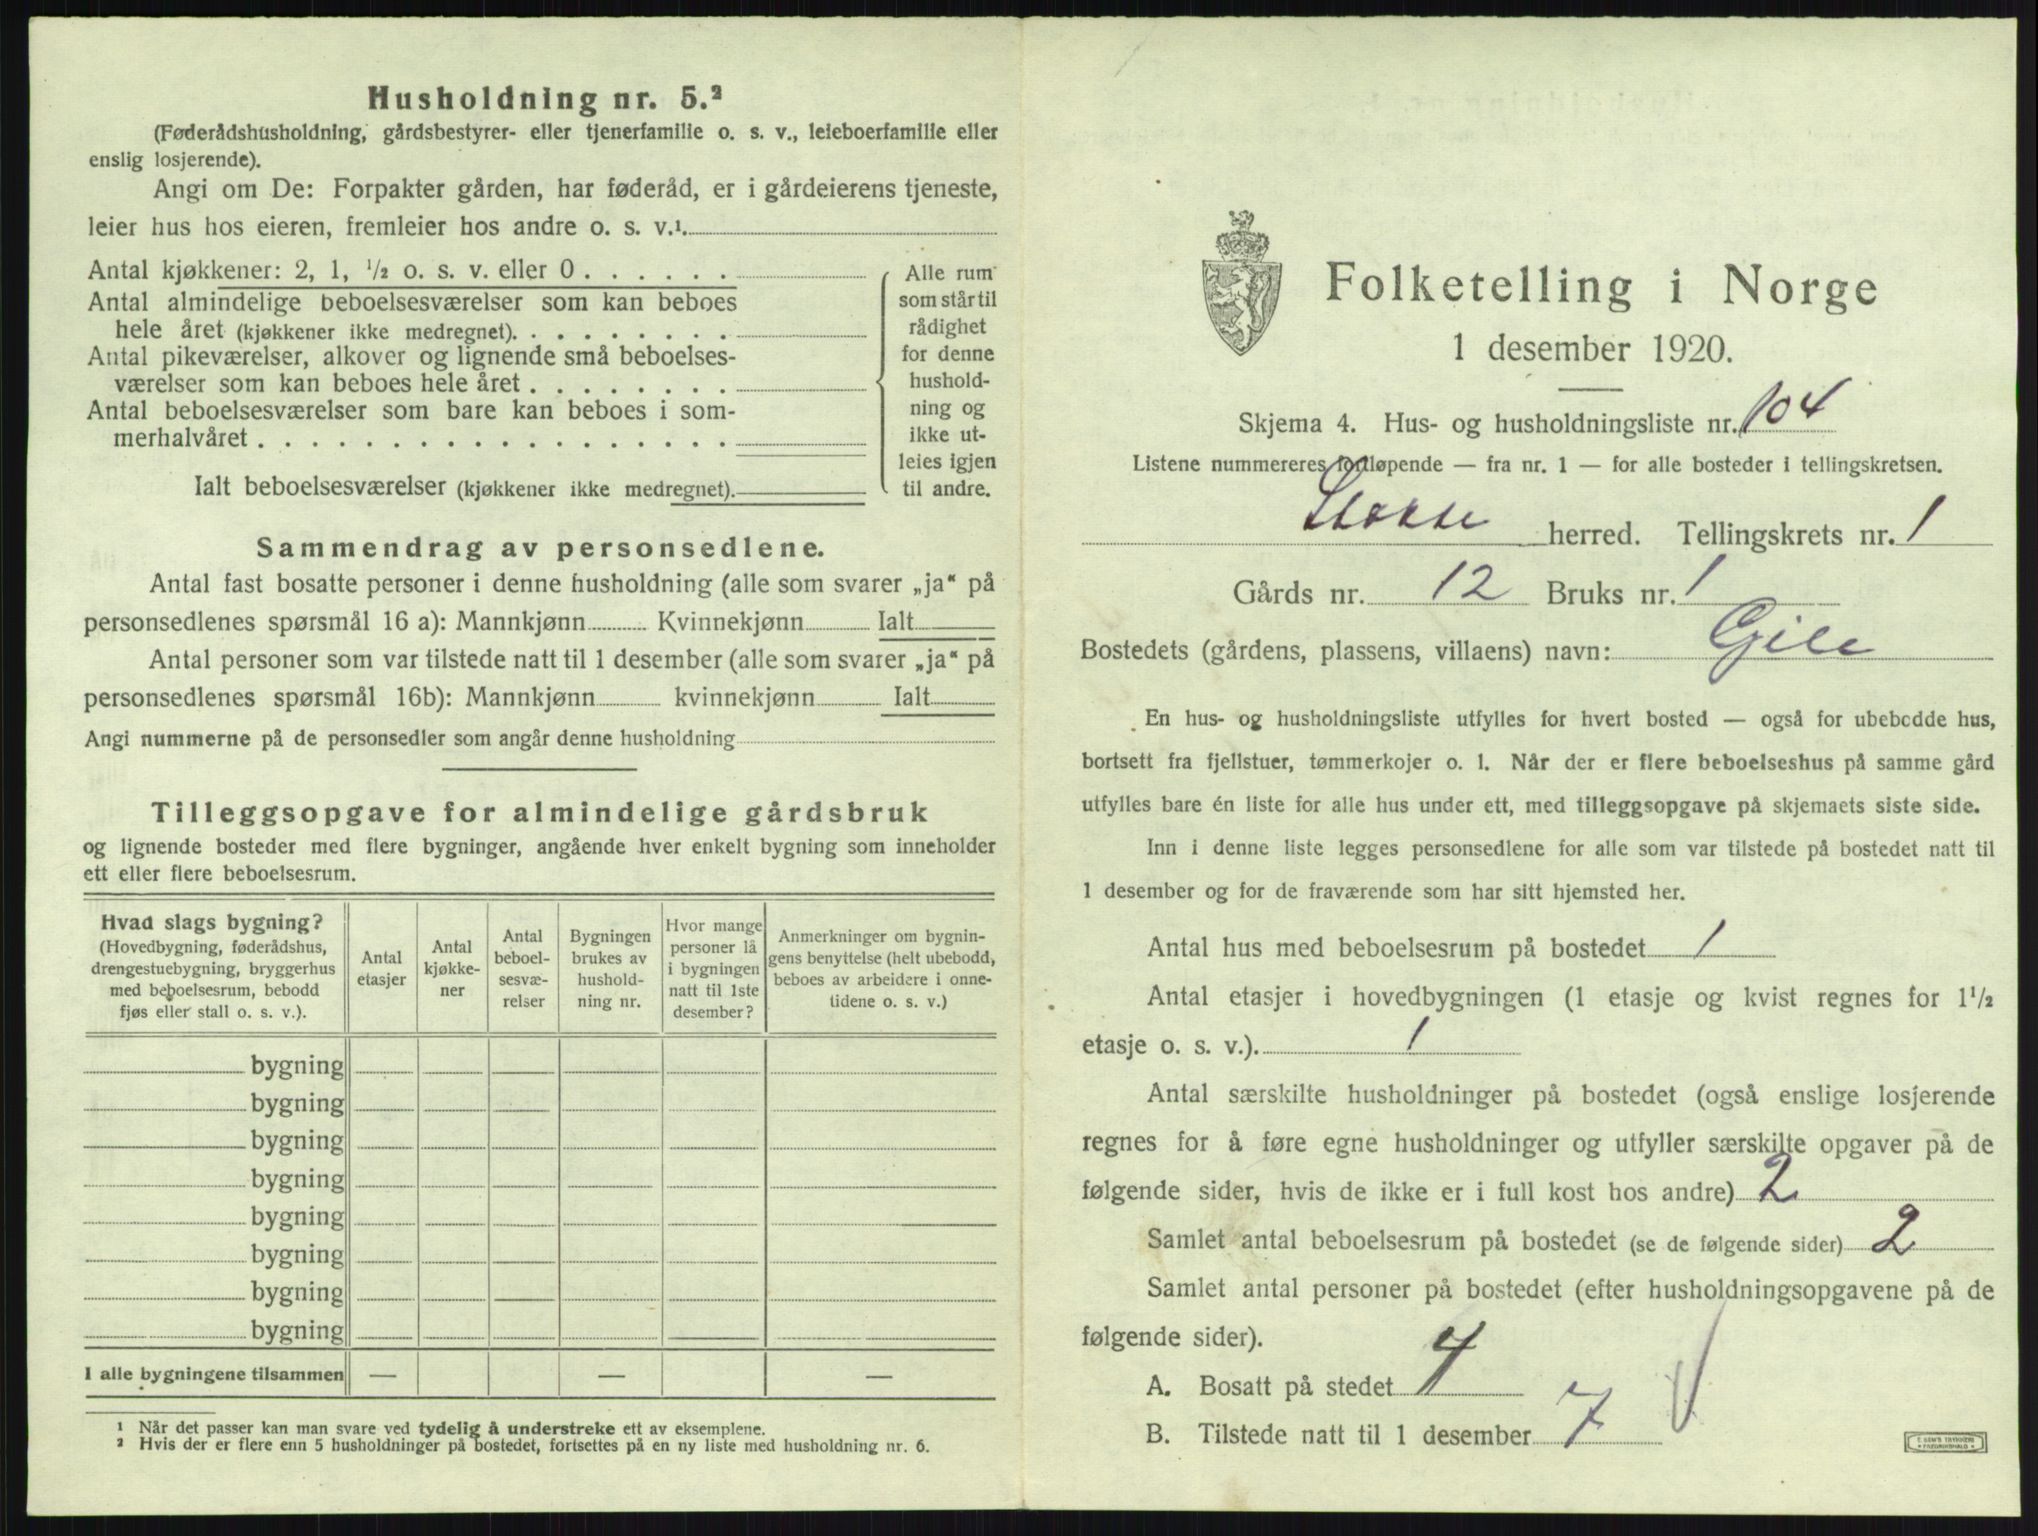 Husholdning nr. 5.²
(Føderådshusholdning, gårdsbestyrer- eller tjenerfamilie o. s. v., leieboerfamilie eller
enslig losjerende).
Angi om De: Forpakter gården, har føderåd, er i gårdeierens tjeneste,
leier hus hos eieren, fremleier hos andre o. s. v.¹.
Antal kjøkkener: 2, 1, ½ o. s. v. eller 0 . . . . . .
Antal almindelige beboelsesværelser som kan beboes
hele året (kjøkkener ikke medregnet). . . . . . . . .
Antal pikeværelser, alkover og lignende små beboelses-
værelser som kan beboes hele året . . . . . . . .
Antal beboelsesværelser som bare kan beboes i som-
merhalvåret . . . . . . . . . . . . . . . . . .
Ialt beboelsesværelser (kjøkkener ikke medregnet).
Alle rum
som står til
rådighet
for denne
hushold-
ning og
ikke ut-
leies igjen
til andre.
Sammendrag av personsedlene.
Antal fast bosatte personer i denne husholdning (alle som svarer „ja“ på
personsedlenes spørsmål 16 a): Mannkjønn Kvinnekjønn Ialt
Antal personer som var tilstede natt til 1 desember (alle som svarer „ja“ på
personsedlenes spørsmål 16b): Mannkjønn kvinnekjønn Ialt
Angi nummerne på de personsedler som angår denne husholdning
Tilleggsopgave for almindelige gårdsbruk
og lignende bosteder med flere bygninger, angående hver enkelt bygning som inneholder
ett eller flere beboelsesrum.
Hvad slags bygning?
(Hovedbygning, føderådshus,
drengestuebygning, bryggerhus
med beboelsesrum, bebodd
fjøs eller stall o. s. v.).
Antal
etasjer
Antal
kjøkke-
ner
Antal
beboel-
sesvæ-
relser
Bygningen
brukes av
hushold-
ning nr.
Hvor mange
personer lå
i bygningen
natt til 1ste
desember?
Anmerkninger om bygnin-
gens benyttelse (helt ubebodd,
beboes av arbeidere i onne-
tidene o. s. v.)
bygning
bygning
bygning
bygning
bygning
bygning
bygning
bygning
I alle bygningene tilsammen — — —
¹ Når det passer kan man svare ved tydelig å understreke ett av eksemplene.
² Hvis der er flere enn 5 husholdninger på bostedet, fortsettes på en ny liste med husholdning nr. 6.
Folketelling i Norge
1 desember 1920.
Skjema 4. Hus- og husholdningsliste nr. 104
Listene nummereres fortløpende — fra nr. 1 — for alle bosteder i tellingskretsen.
Stokke herred. Tellingskrets nr. 1
Gårds nr. 12 Bruks nr. 1
Bostedets (gårdens, plassens, villaens) navn: Gile
En hus- og husholdningsliste utfylles for hvert bosted — også for ubebodde hus,
bortsett fra fjellstuer, tømmerkojer o. l. Når der er flere beboelseshus på samme gård
utfylles bare én liste for alle hus under ett, med tilleggsopgave på skjemaets siste side.
Inn i denne liste legges personsedlene for alle som var tilstede på bostedet natt til
1 desember og for de fraværende som har sitt hjemsted her.
Antal hus med beboelsesrum på bostedet 1
Antal etasjer i hovedbygningen (1 etasje og kvist regnes for 1½
etasje o. s. v.). 1
Antal særskilte husholdninger på bostedet (også enslige losjerende
regnes for å føre egne husholdninger og utfyller særskilte opgaver på de
følgende sider, hvis de ikke er i full kost hos andre) 2
Samlet antal beboelsesrum på bostedet (se de følgende sider) 2
Samlet antal personer på bostedet (efter husholdningsopgavene på de
følgende sider).
A. Bosatt på stedet 4
B. Tilstede natt til 1 desember 7